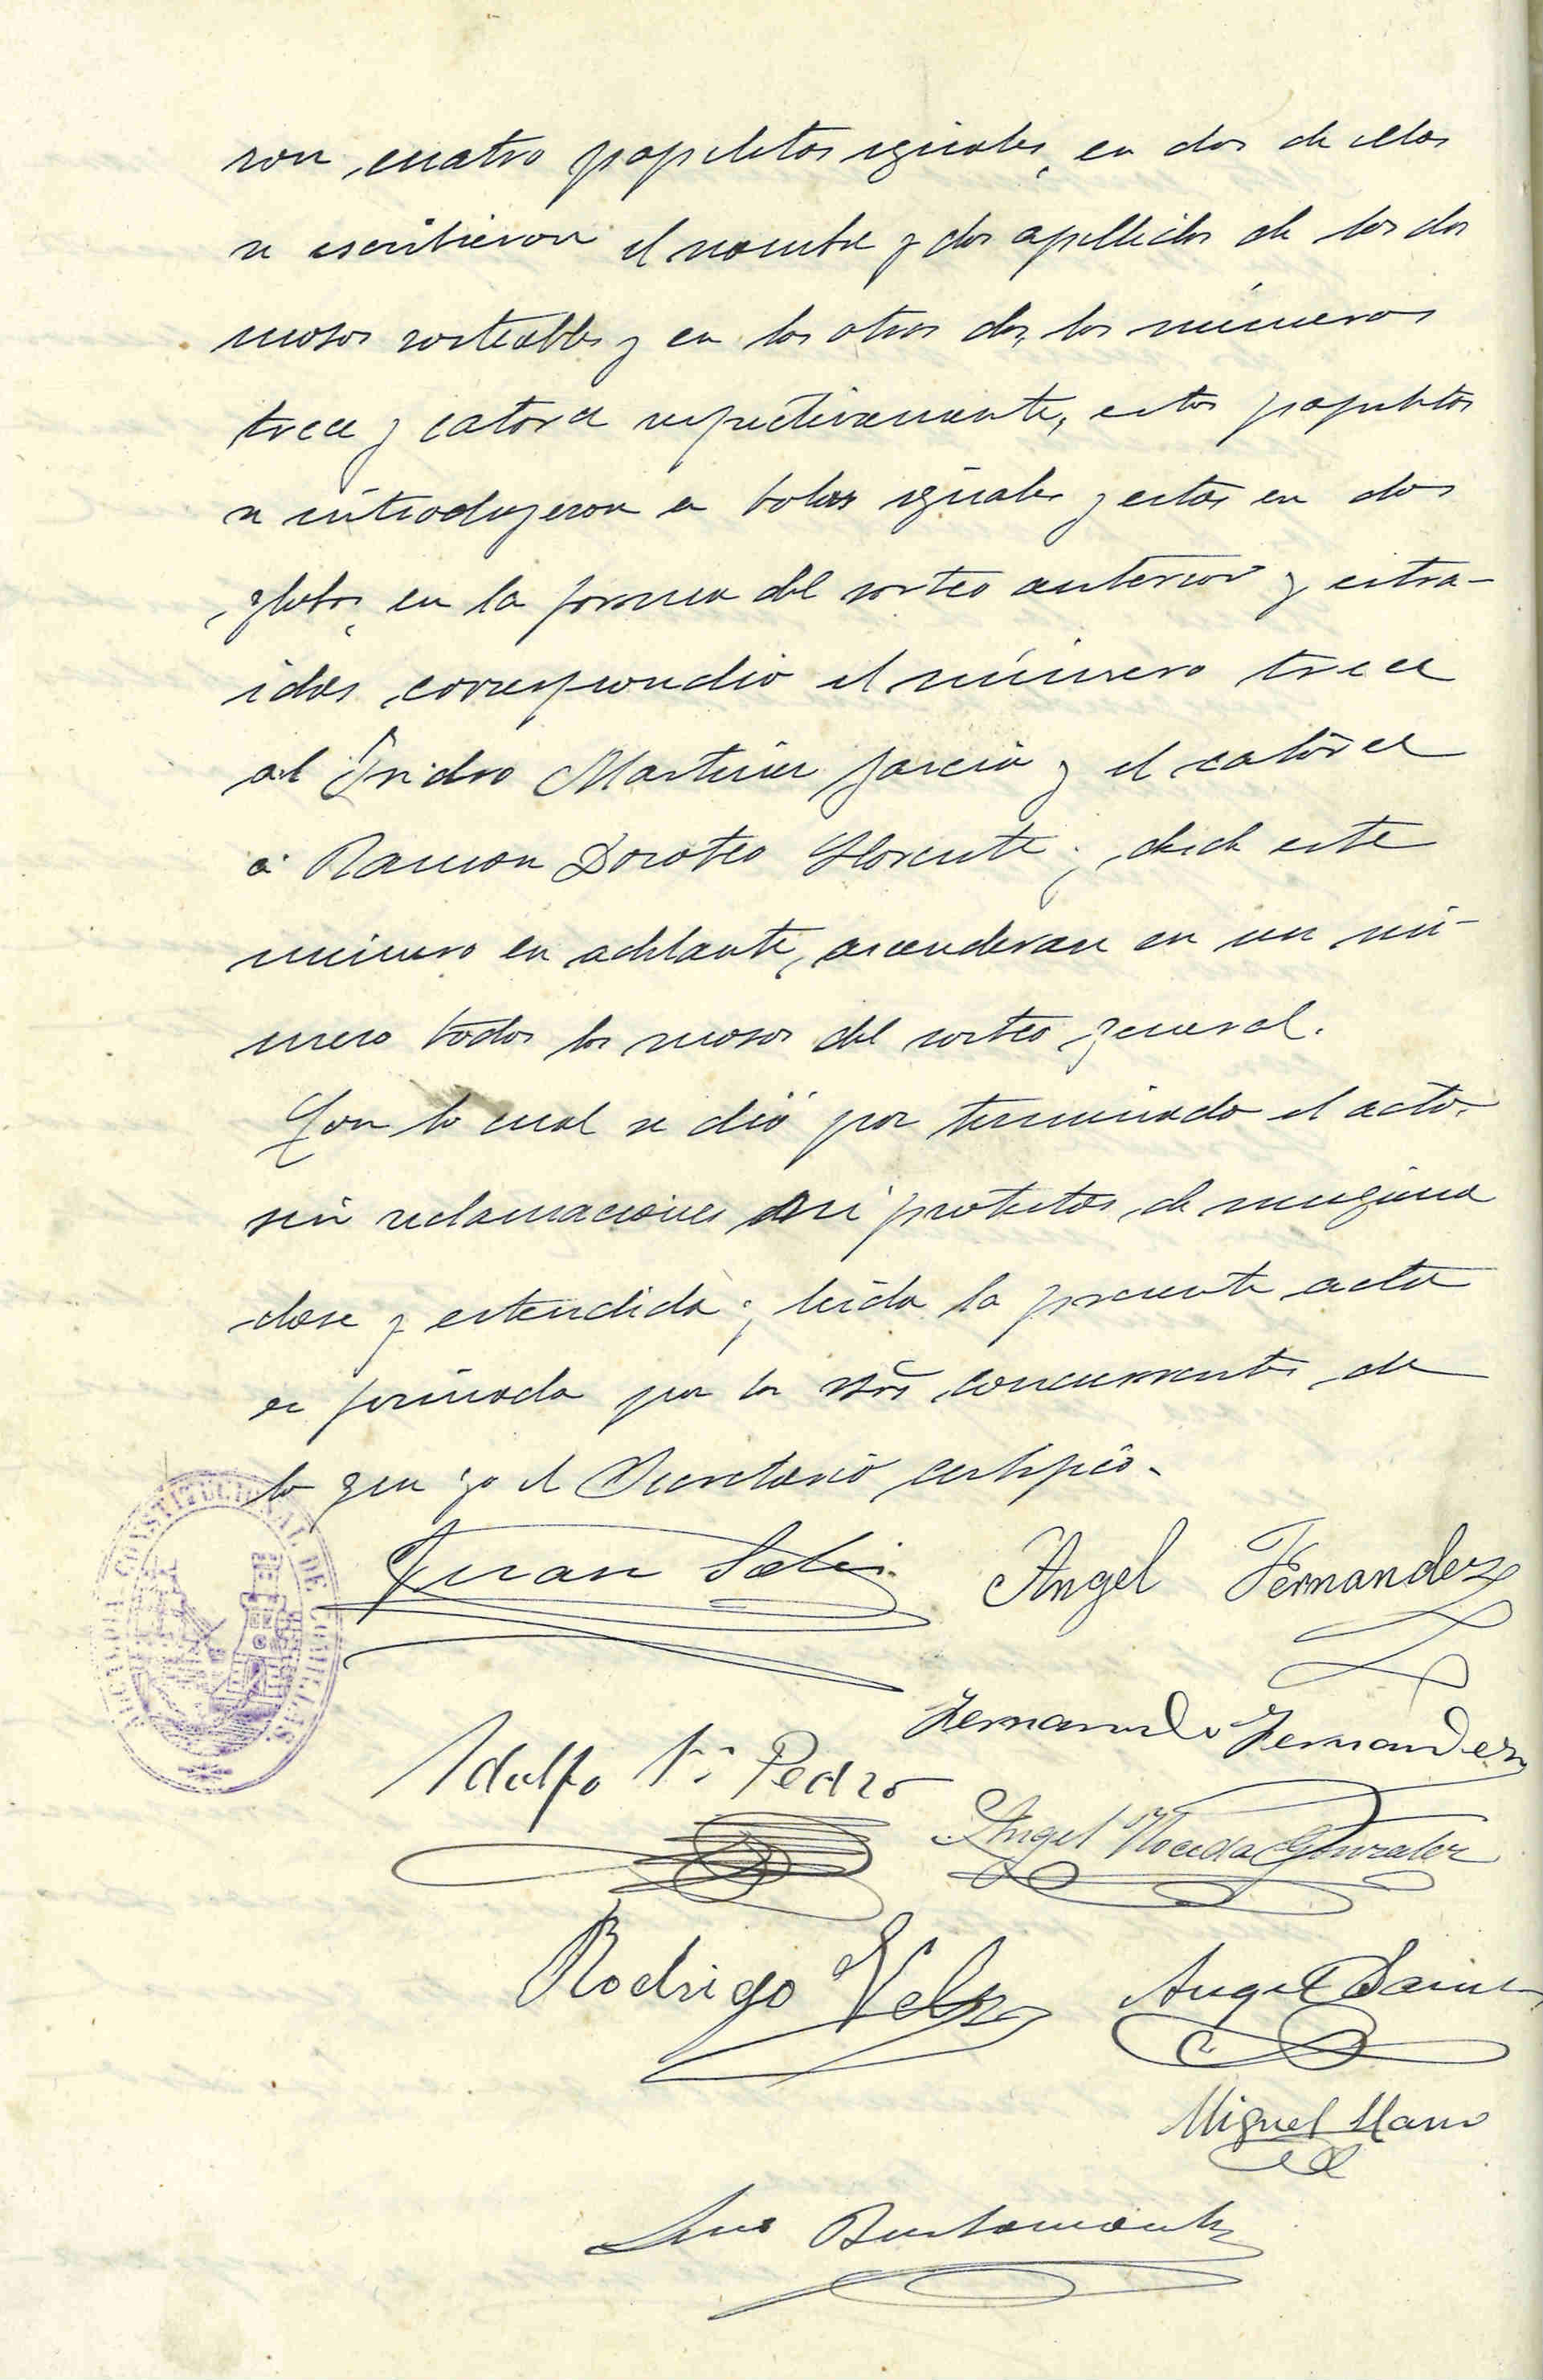 ron, cuatro papeletas iguales, en dos de ellas
se escribieron el nombre y dos apellidos de los dos
mosos sorteables y en los otros dos, los números
trece y catorce respectivamente, estas papeletas
se introdujeron en bolas iguales y estas en dos
globos, en la forma del sorteo anterior y estra-
idas, correspondio el número trece
al Isidro Martinez Garcia y el catorce
á Ramon Doroteo Llorente; desde este
número en adelante, ascenderan en un nú-
mero todos los mosos del sorteo general.
Con lo cual se dió por terminado el acto
sin reclamaciones ni protestas, de ninguna
clase y estendida y leida la presente acta
es firmada por los Srs. concurrentes, de
lo que yo el Secretario, certifico.
ALCALDIA CONSTITUCIONAL DE COMILLAS
Juan
Angel Fernandez
Fernando Fernandez
Adolfo Pedro
Angel Noceda Gonzalez
Rodrigo Velez
Angel Sainz
Miguel Llano
Bustamante